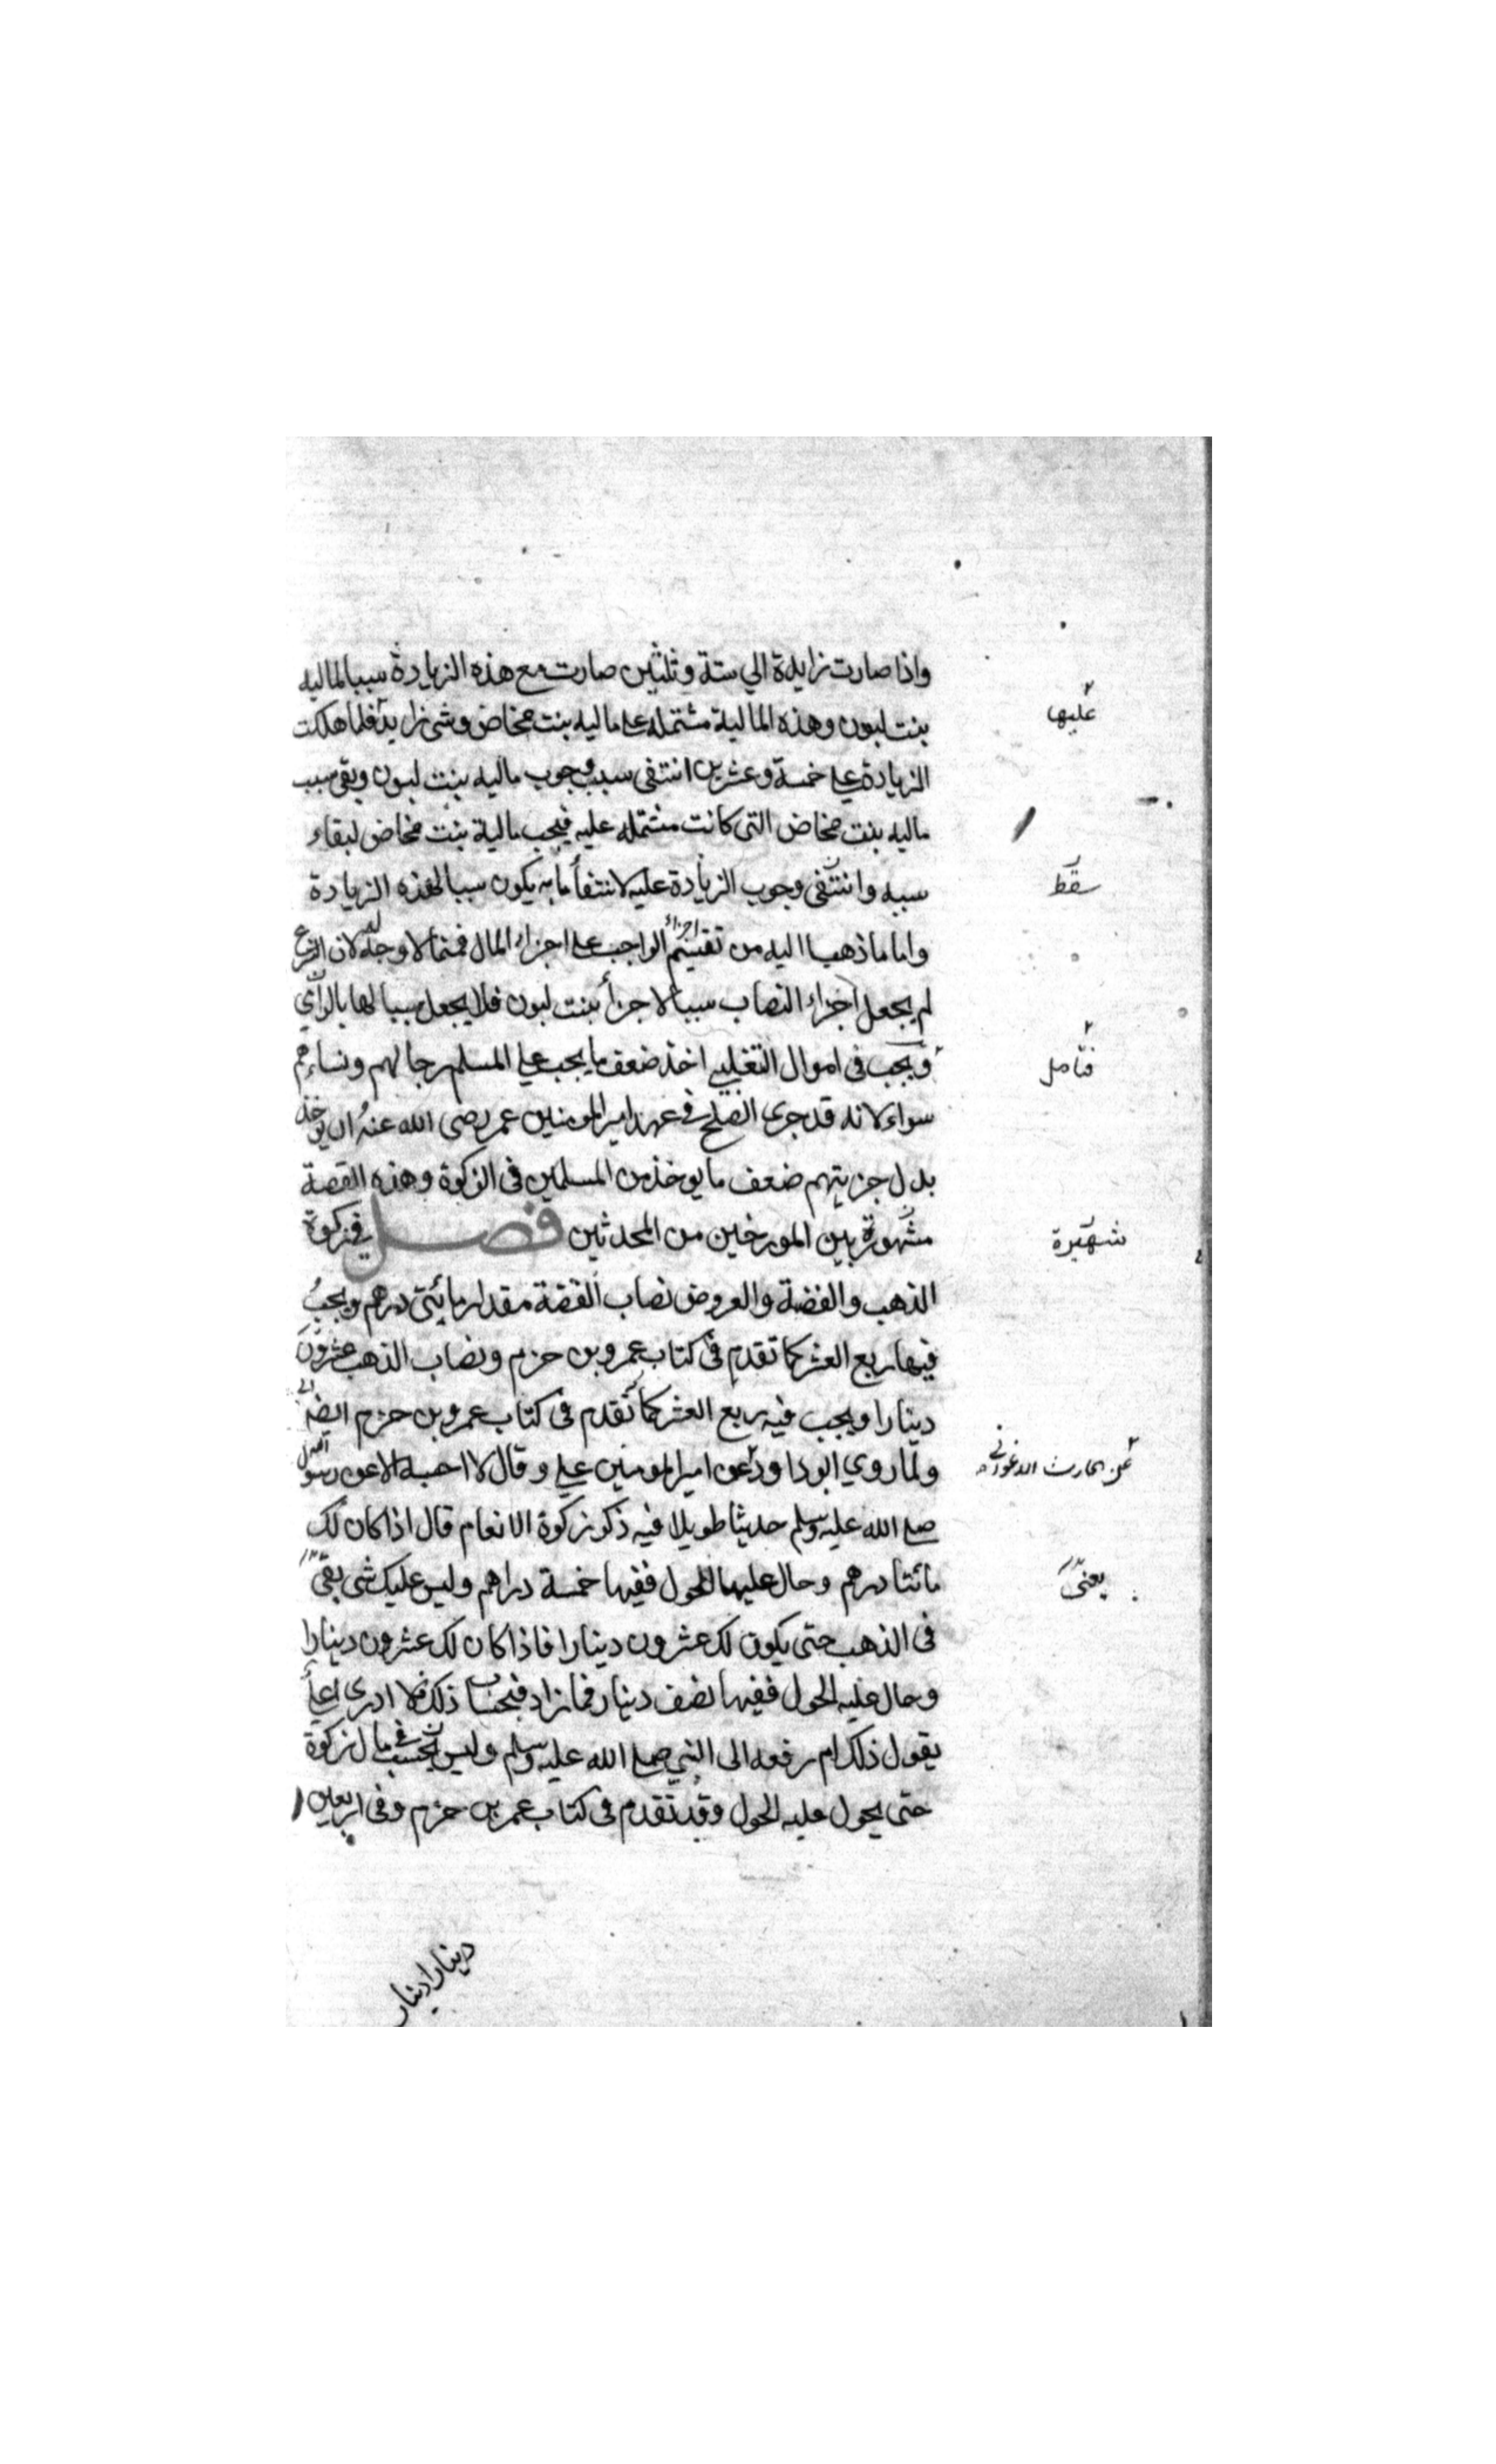 واذا صارت زايدة الي ستة وثلثين صارت مع هذه الزيادة سببا لماليه
عليها
بنت لبون وهذه المالية مشتمله على ماليه بنت مخاض وشى زايد فلما هلكت
الزيادة على خمسة وعشرين انتفى سبب وجوب ماليه بنت لبون وبقى سبب
ماليه بنت مخاض التى كانت مشتمله عليه فيجب مالية بنت مخاض لبقاء
سببه وانتفى وجوب الزيادة عليه لانتفأ ما به يكون سببا لهذه الزيادة
سقط
واما ما ذهبا اليه من تقسيم اجزاء الواجب على اجزاء المال فمما لا وجه له لان الشرع
لم يجعل اجزاء النصاب سببا لاجزأ بنت لبون فلا يجعل سببا لها بالراي
فتامل
ويجب فى اموال التغلبي اخذ ضعف ما يجب على المسلم رجالهم ونساءهم
سواء لانه قد جرى الصلح في عهد امير المومنين عمر رضى الله عنه ان يوخذ
بدل جزيتهم ضعف ما يوخذ من المسلمين فى الزكوة وهذه القصة
مشهورة بين المورخين من المحدثين فصل في زكوة
شهيرة
الذهب والفضة والعروض نصاب الفضة مقدار مائتى درهم ويجب
فيها ربع العشر كما تقدم فى كتاب عمرو بن حزم ونصاب الذهب عشرون
دينارا ويجب فيه ربع العشر كما تقدم فى كتاب عمرو بن حزم ايضا
ولما روي ابو داود عن امير المومنين على وقال لا احسبه الا عن رسول
عن الحارث
صلى الله عليه وسلم حديثا طويلا فيه ذكر زكوة الانعام قال اذا كان لك
مائتا درهم وحال عليها الحول ففيها خمسة دراهم وليس عليك شى
يعنى
فى الذهب حتى يكون لك عشرون دينارا فاذا كان لك عشرون دينارا
وحال عليه الحول ففيها نصف دينار فما زاد فبحساب ذلك فلا ادرى اعلى
يقول ذلك ام رفعه الى النبي صلى الله عليه وسلم وليس في مال زكوة
حتى يحول عليه الحول وقد تقدم فى كتاب عمر بن حزم وفى اربعين
دينارا دينار